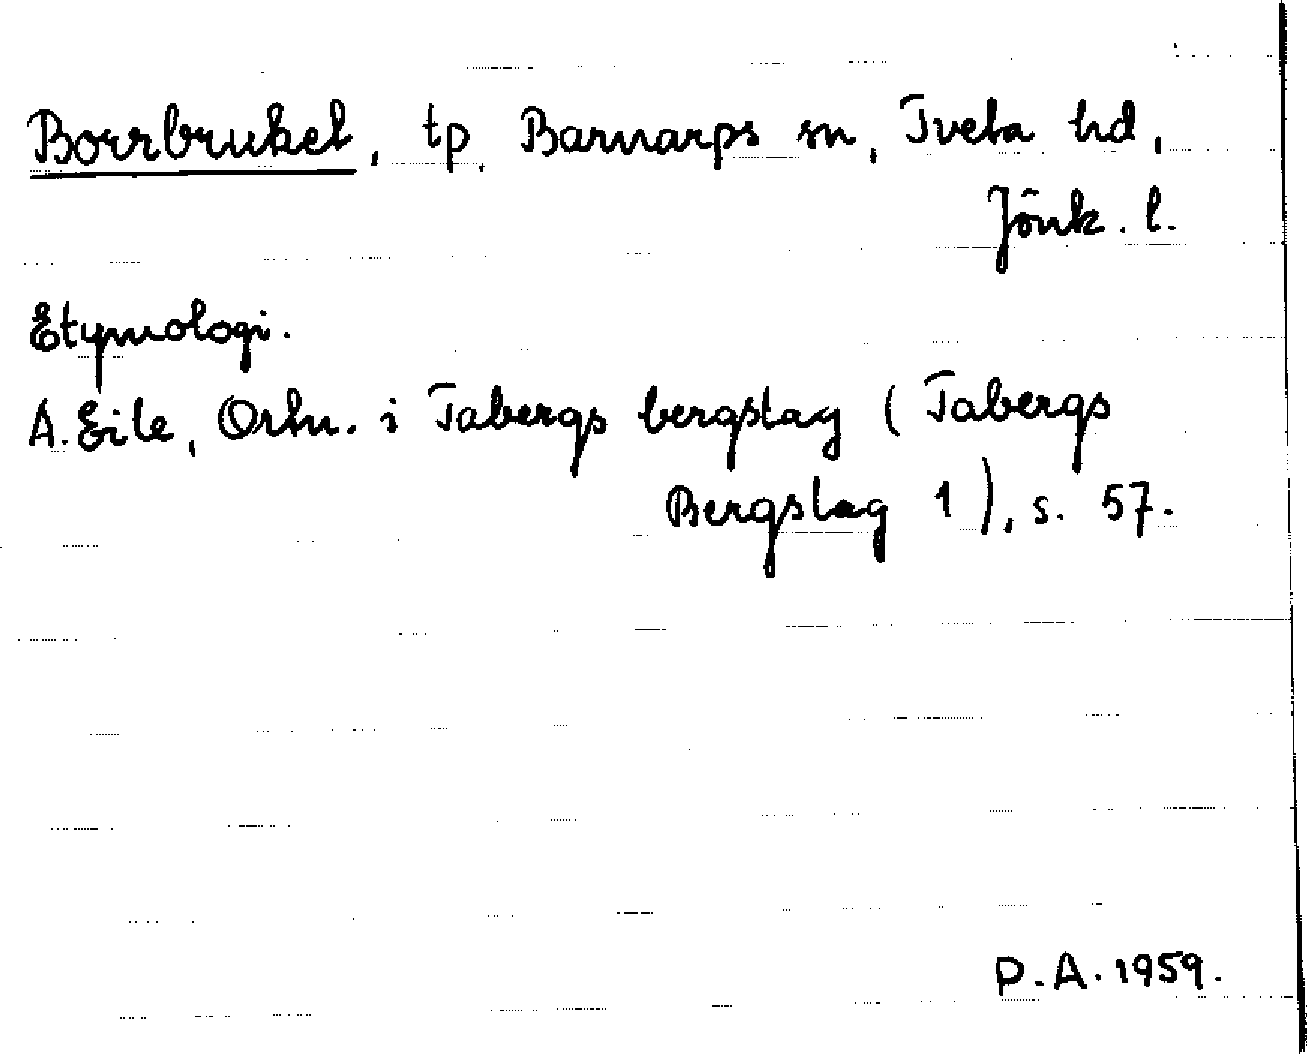 Borrbruket, tp, Barnarps sn, Tveta hd,
Jönk. l.
Etymologi.
A. Eile, Ortn. i Tabergs bergslag (Tabergs
Bergslag 1), s. 57.
P.A. 1959.